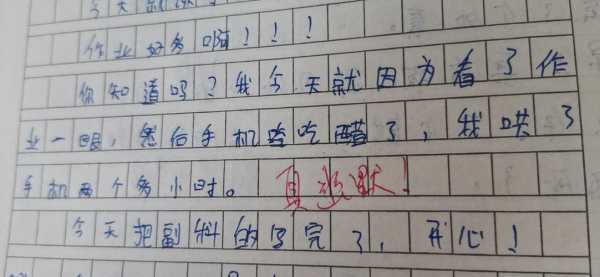 今天就
作业好多啊！！！
你知道吗？我今天就因为看了作
业一眼，然后手机吃吃醋了，我哄了
手机两个多小时。真幽默！
今天把副科的写完了，开心！